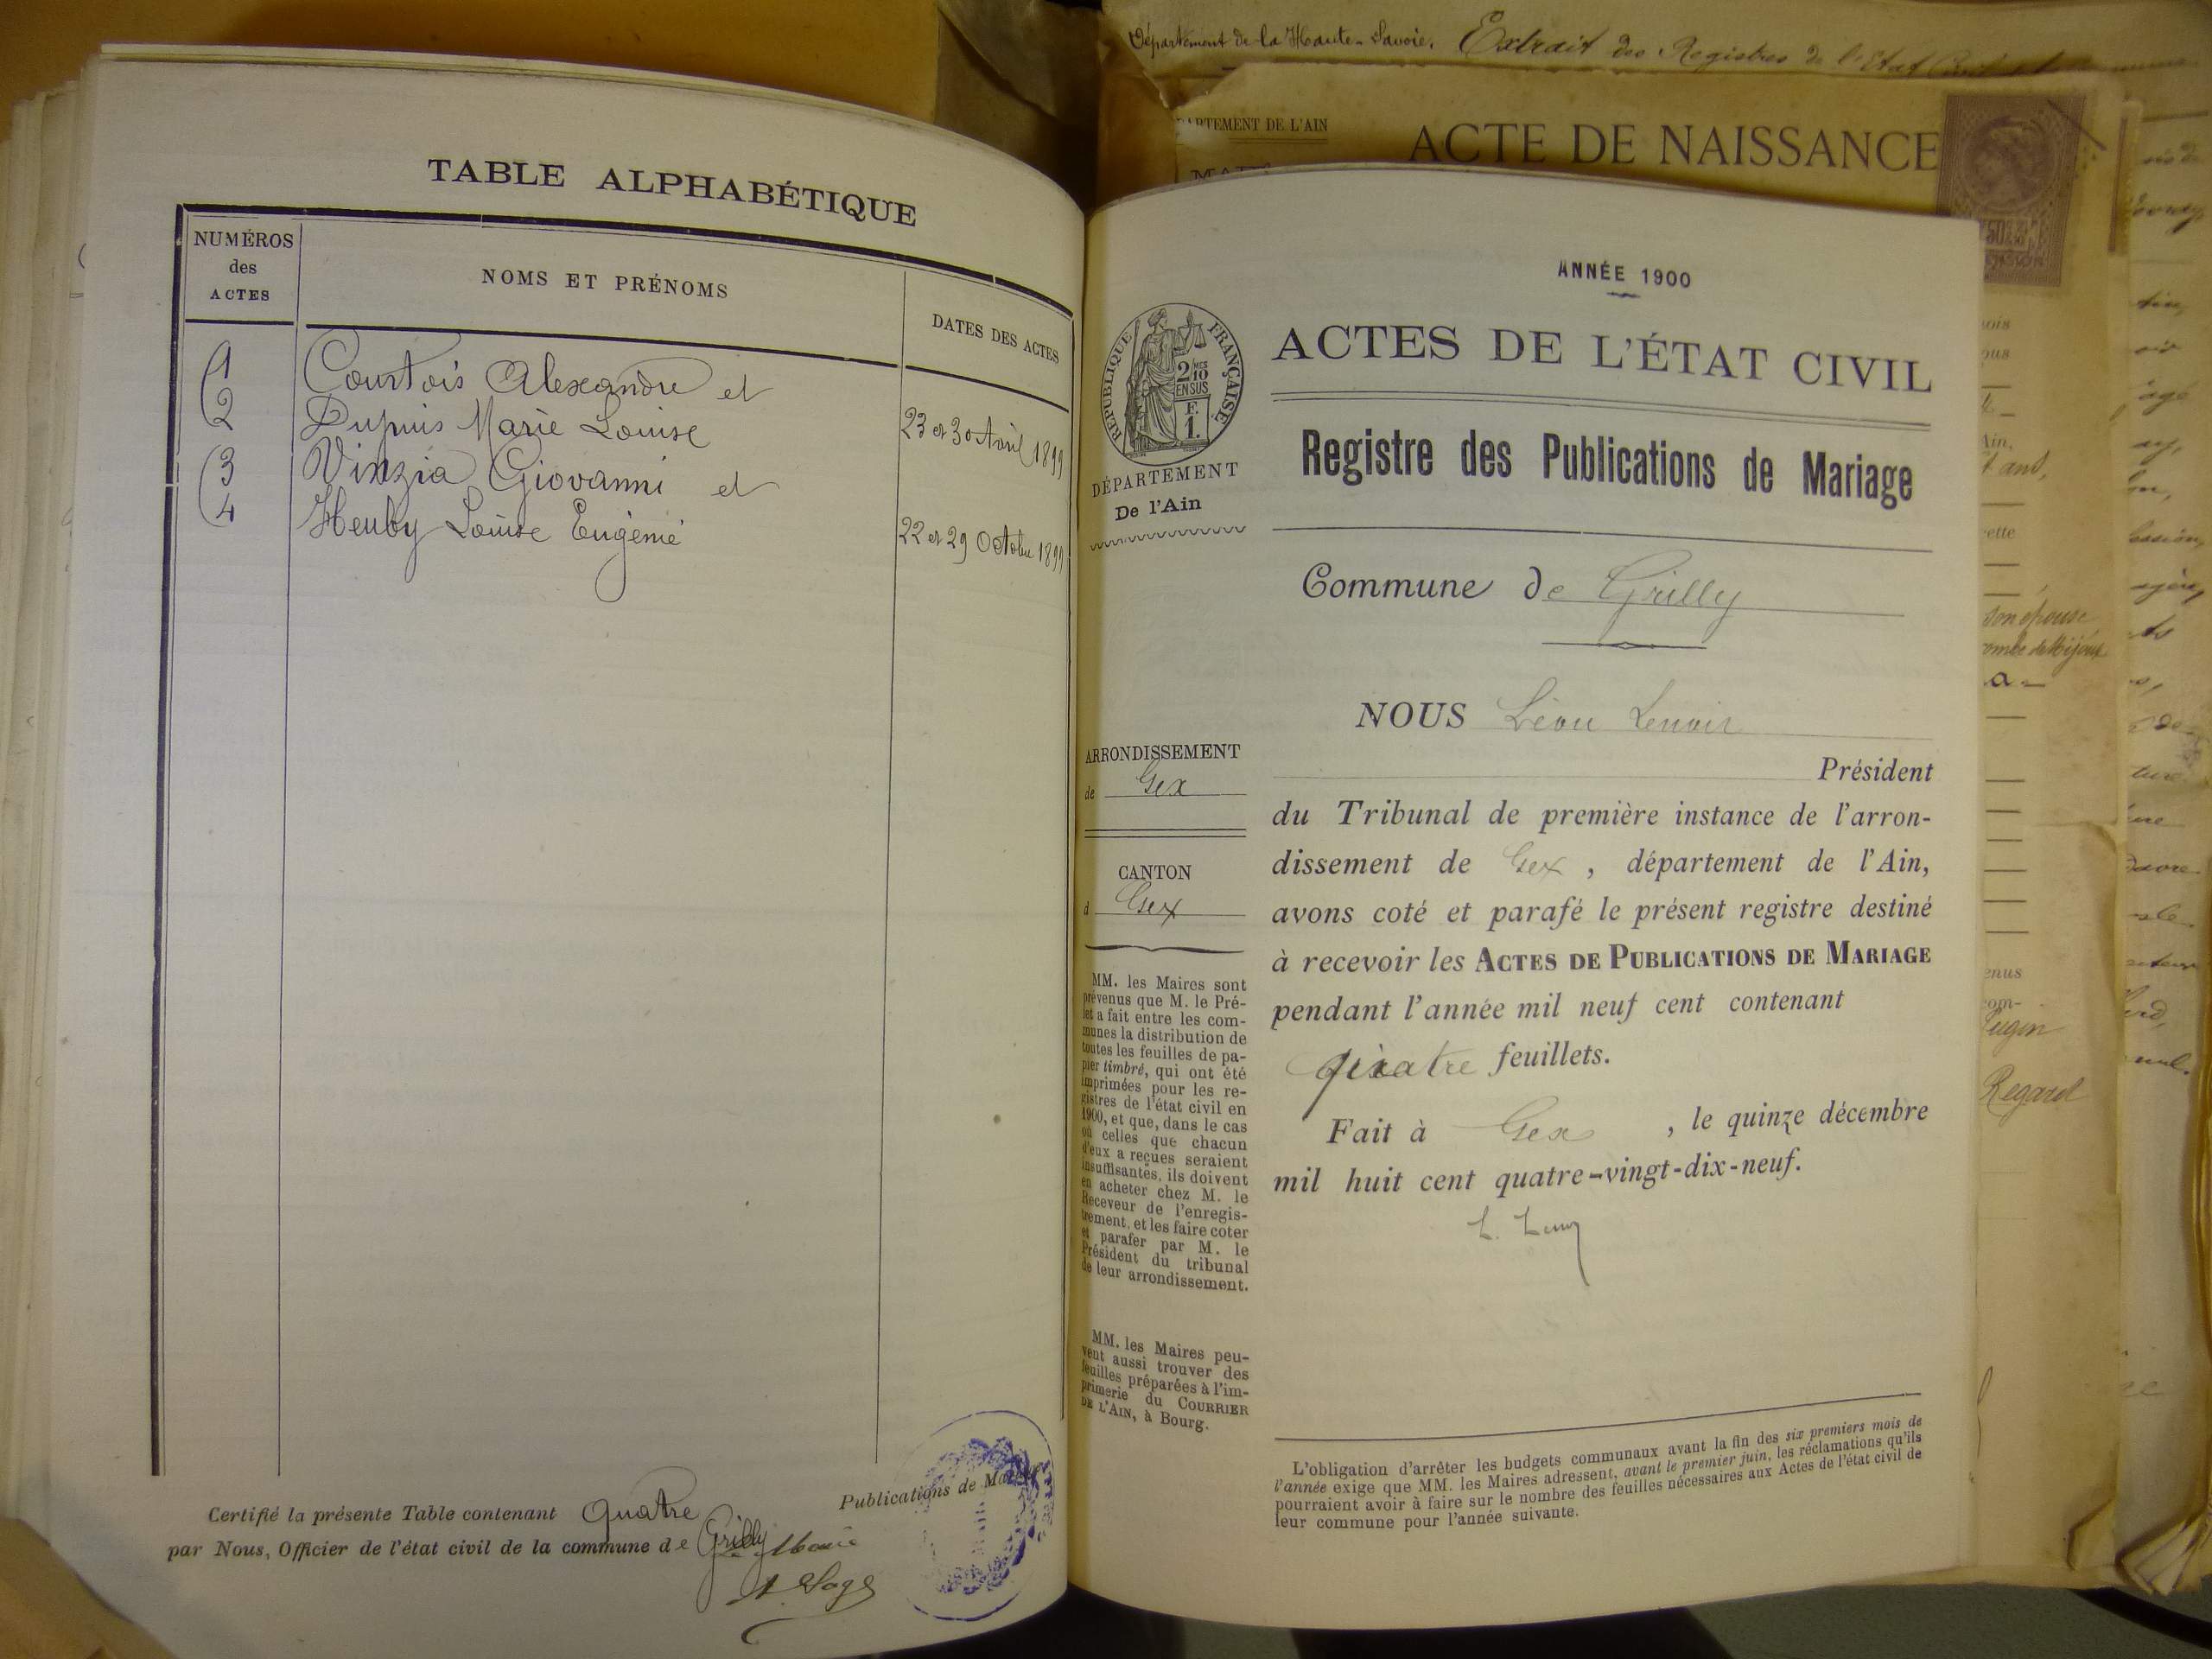 TABLE ALPHABÉTIQUE
NUMÉROS
des
ACTES
NOMS ET PRÉNOMS
DATES DES ACTES
1
Courtois Alexandre et
2
Dupuis Marie Louise
23 et 30 Avril 1899
3
Vinzia Giovanni et
4
Henby Louise Eugénie
22 et 29 Octobre 1899
Certifié la présente Table contenant Quatre
Publications de
par Nous, Officier de l'état civil de la commune de Grilly
Département de la Haute-Savoie. Extrait des Registres de l'Etat
DEPARTEMENT DE L'AIN
ACTE DE NAISSANCE
ANNÉE 1900
RÉPUBLIQUE FRANÇAISE
2/10
EN SUS
F.
1.
DÉPARTEMENT
De l'Ain
ACTES DE L'ÉTAT CIVIL
Registre des Publications de Mariage
Commune de Grilly
NOUS Léon Lenoir
Président
du Tribunal de première instance de l'arron-
dissement de Gex, département de l'Ain,
avons coté et parafé le présent registre destiné
à recevoir les ACTES DE PUBLICATIONS DE MARIAGE
pendant l'année mil neuf cent contenant
quatre feuillets.
Fait à Gex, le quinze décembre
mil huit cent quatre-vingt-dix-neuf.
ARRONDISSEMENT
de Gex
CANTON
d Gex
MM. les Maires sont
prévenus que M. le Pré-
fet a fait entre les com-
munes la distribution de
toutes les feuilles de pa-
pier timbré, qui ont été
imprimées pour les re-
gistres de l'état civil en
1900, et que, dans le cas
où celles que chacun
d'eux a reçues seraient
insuffisantes, ils doivent
en acheter chez M. le
Receveur de l'enregis-
trement, et les faire coter
et parafer par M. le
Président du tribunal
de leur arrondissement.
MM. les Maires peu-
vent aussi trouver des
feuilles préparées à l'im-
primerie du COURRIER
DE L'AIN, à Bourg.
L'obligation d'arrêter les budgets communaux avant la fin des six premiers mois de
l'année exige que MM. les Maires adressent, avant le premier juin, les réclamations qu'ils
pourraient avoir à faire sur le nombre des feuilles nécessaires aux Actes de l'état civil de
leur commune pour l'année suivante.
son épouse
Regard